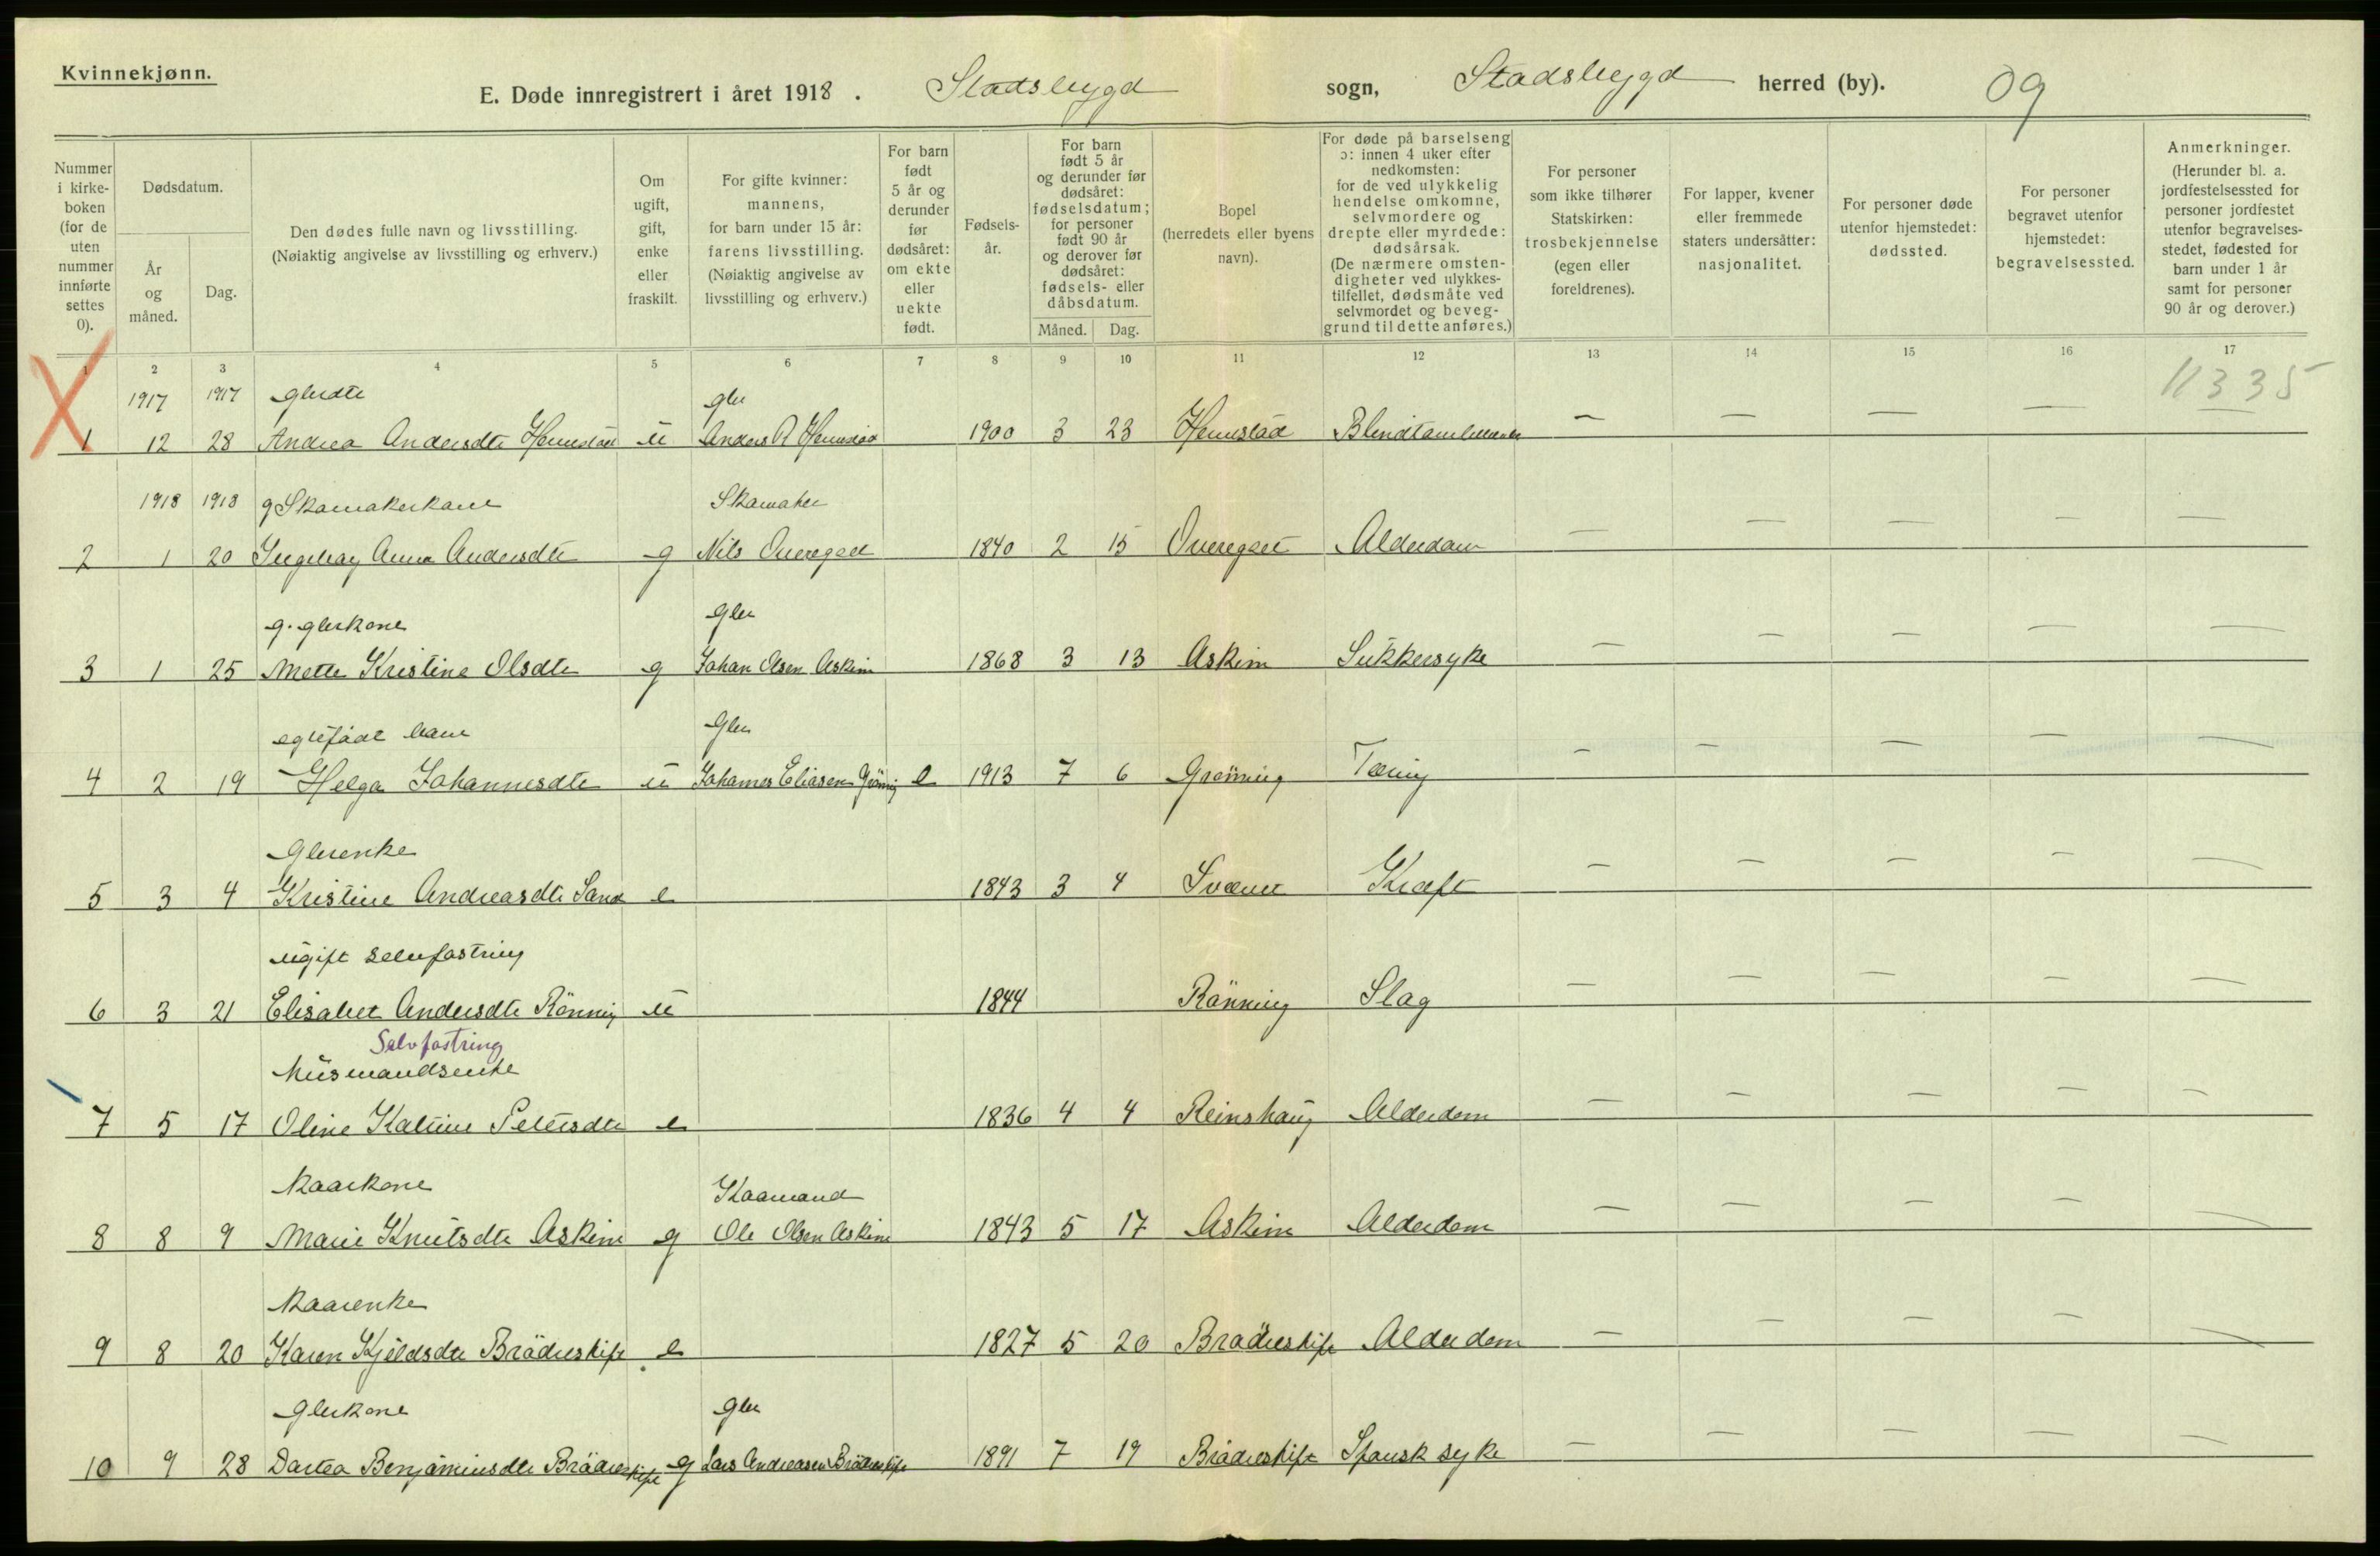 Kvinnekjønn.
E. Døde innregistrert i året 1918. Stadsbygd sogn, Stadsbygd herred (by). 09
Nummer i kirke-boken (for de uten nummer innførte settes 0).
Dødsdatum.
År og måned.
Dag.
Den dødes fulle navn og livsstilling.
(Nøiaktig angivelse av livsstilling og erhverv.)
Om ugift, gift, enke eller fraskilt.
For gifte kvinner: mannens, for barn under 15 år: farens livsstilling.
(Nøiaktig angivelse av livsstilling og erhverv.)
For barn født 5 år og derunder før dødsåret: om ekte eller uekte født.
Fødsels-år.
For barn født 5 år og derunder før dødsåret: fødselsdatum; for personer født 90 år og derover før dødsåret: fødsels- eller dåbsdatum.
Måned. Dag.
Bopel (herredets eller byens navn).
For døde på barselseng ɔ: innen 4 uker efter nedkomsten: for de ved ulykkelig hendelse omkomne, selvmordere og drepte eller myrdede: dødsårsak.
(De nærmere omsten-digheter ved ulykkes-tilfellet, dødsmåte ved selvmordet og beveg-grund til dette anføres.)
For personer som ikke tilhører Statskirken: trosbekjennelse (egen eller foreldrenes).
For lapper, kvener eller fremmede staters undersåtter: nasjonalitet.
For personer døde utenfor hjemstedet: dødssted.
For personer begravet utenfor hjemstedet: begravelsessted.
Anmerkninger.
(Herunder bl. a. jordfestelsessted for personer jordfestet utenfor begravelses-stedet, fødested for barn under 1 år samt for personer 90 år og derover.)
1 2 3 4 5 6 7 8 9 10 11 12 13 14 15 16 17
11335
1917 1917 gbrdtr gbr
1 12 28 Andrea Andersdtr Hemstad u Anders A Hemstad 1900 3 23 Hemstad — — — —
1918 1918 g Skomakerkone Skomaker
2 1 20 Ingebor Anna Andersdtr g Nils Overegget 1840 2 15 Overegget Alderdom — — — — —
g. gbrkone gbr
3 1 25 Mette Kristine Olsdtr g Johan Olsen Askim 1868 3 13 Askim Sukkersyke — — — — —
egtefødt barn Gbr
4 2 19 Helga Johannesdtr u Johannes Eliasen Grönnig e 1913 7 6 Grönning Tæring — — — — —
Gbrenke
5 3 4 Kristine Andreasdtr Sand e 1843 3 4 Kræft — — — — —
ugift selvfostring
6 3 21 Elisabet Andersdtr Rönning u 1844 Rönning Slag — — — — —
Selvfostring
husmandsenke
7 5 17 Oline Katrine Petersdtr e 1836 4 4 Reinshaug Alderdom — — — — —
Kaarkone Kaarmand
8 8 9 Marie Knutsdtr Askim g Ole Olsen Askim 1843 5 17 Askim Alderdom — — — — —
Kaarenke
9 8 20 Karen Kjeldsdtr Brödreskift e 1827 5 20 Brödreskift Alderdom — — — — —
Gbrkone gbr
10 9 28 Dortea Benjaminsdtr Brödreskift g Lars Andreasen Brödreskift 1891 7 19 Brödreskift Spansk syke — — — — —